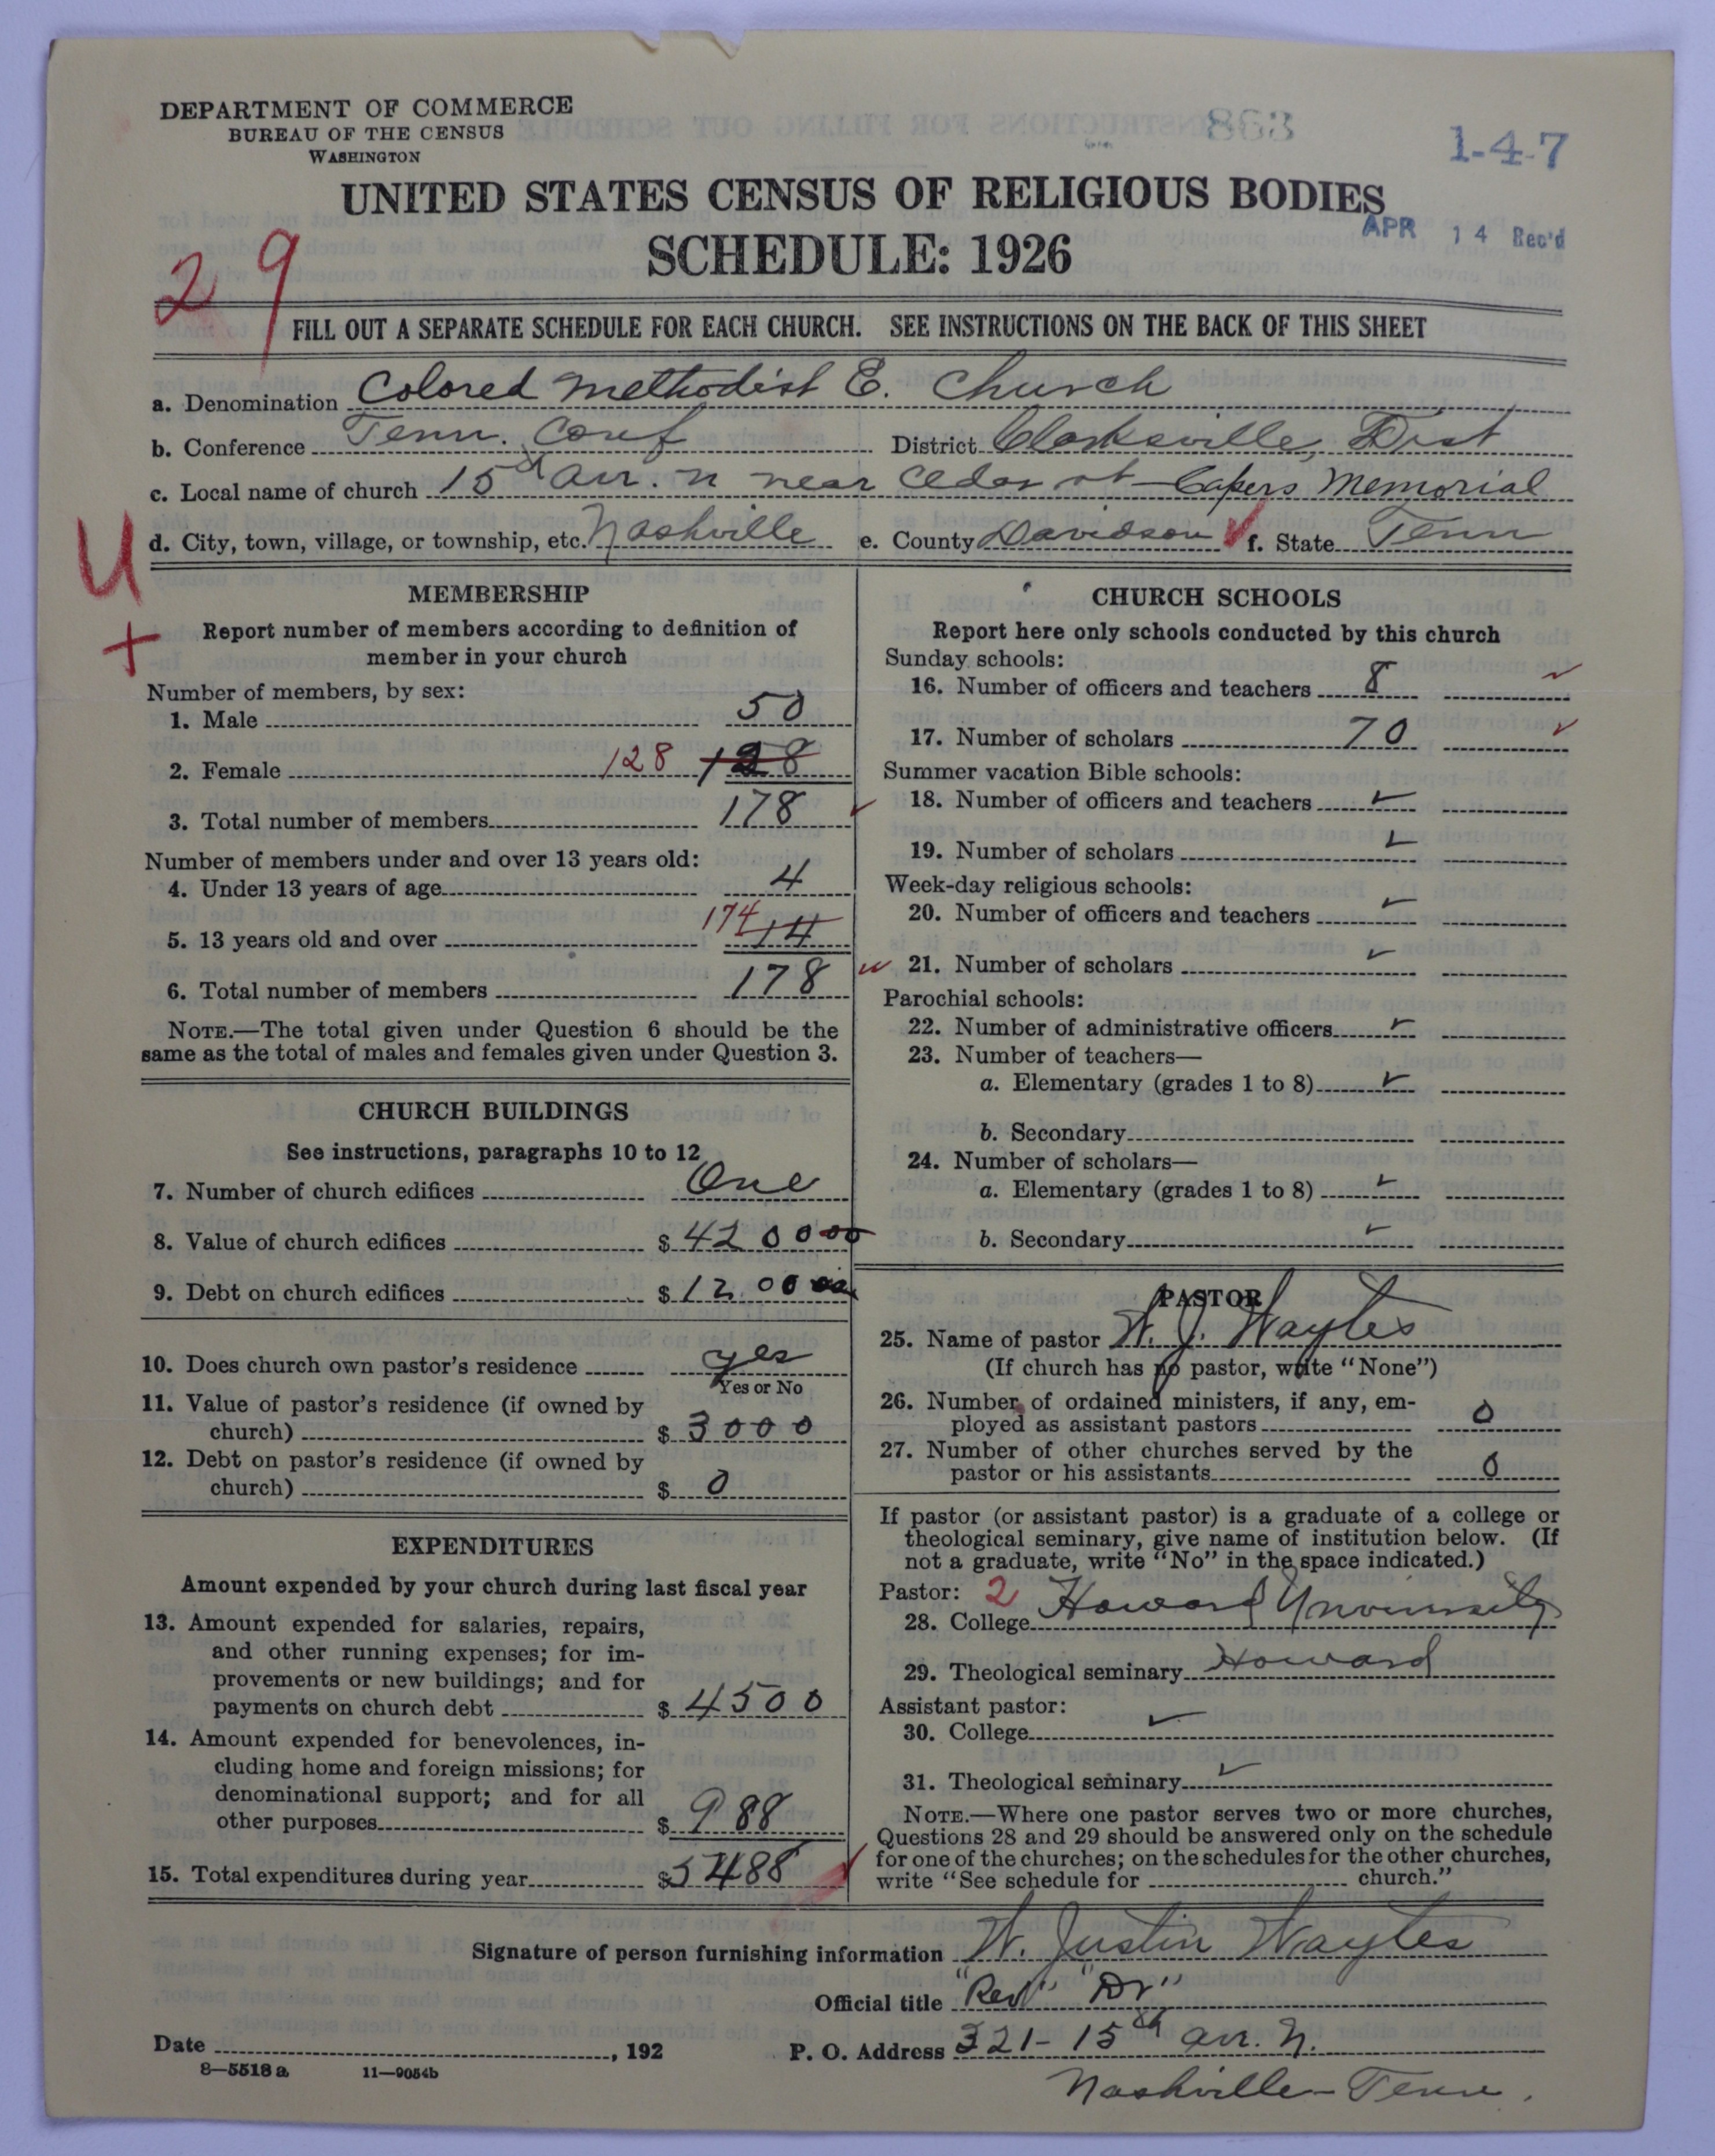 DEPARTMENT OF COMMERCE
BUREAU OF THE CENSUS
WASHINGTON
863
1-4-7
UNITED STATES CENSUS OF RELIGIOUS BODIES
APR 14 Rec'd
SCHEDULE: 1926
29
FILL OUT A SEPARATE SCHEDULE FOR EACH CHURCH. SEE INSTRUCTIONS ON THE BACK OF THIS SHEET
a. Denomination Colored Methodist E. Church
b. Conference Tenn. Conf District Clarksville, Dist
c. Local name of church 15th Av. N near Cedar st - Capers Memorial
d. City, town, village, or township, etc. Nashville e. County Davidson f. State Tenn
U
+
MEMBERSHIP
Report number of members according to definition of
member in your church
Number of members, by sex:
1. Male 50
2. Female 128 128
3. Total number of members 178
Number of members under and over 13 years old:
4. Under 13 years of age 4
5. 13 years old and over 174 14
6. Total number of members 178
NOTE.—The total given under Question 6 should be the
same as the total of males and females given under Question 3.
CHURCH BUILDINGS
See instructions, paragraphs 10 to 12
7. Number of church edifices One
8. Value of church edifices $ 420 00 00
9. Debt on church edifices $ 12 00 00
10. Does church own pastor's residence yes
Yes or No
11. Value of pastor's residence (if owned by
church) $ 3000
12. Debt on pastor's residence (if owned by
church) $ 0
EXPENDITURES
Amount expended by your church during last fiscal year
13. Amount expended for salaries, repairs,
and other running expenses; for im-
provements or new buildings; and for
payments on church debt $ 4500
14. Amount expended for benevolences, in-
cluding home and foreign missions; for
denominational support; and for all
other purposes $ 988
15. Total expenditures during year $ 5488
CHURCH SCHOOLS
Report here only schools conducted by this church
Sunday schools:
16. Number of officers and teachers 8
17. Number of scholars 70
Summer vacation Bible schools:
18. Number of officers and teachers
19. Number of scholars
Week-day religious schools:
20. Number of officers and teachers
21. Number of scholars
Parochial schools:
22. Number of administrative officers
23. Number of teachers—
a. Elementary (grades 1 to 8)
b. Secondary
24. Number of scholars—
a. Elementary (grades 1 to 8)
b. Secondary
PASTOR
25. Name of pastor W. J. Wayles
(If church has no pastor, write "None")
26. Number of ordained ministers, if any, em-
ployed as assistant pastors 0
27. Number of other churches served by the
pastor or his assistants 0
If pastor (or assistant pastor) is a graduate of a college or
theological seminary, give name of institution below. (If
not a graduate, write "No" in the space indicated.)
Pastor: 2
28. College Howard University
29. Theological seminary Howard
Assistant pastor:
30. College
31. Theological seminary
NOTE.—Where one pastor serves two or more churches,
Questions 28 and 29 should be answered only on the schedule
for one of the churches; on the schedules for the other churches,
write "See schedule for church."
Signature of person furnishing information W. Justin Wayles
Official title "Rev" "Dr"
Date , 192 P. O. Address 321-15th Av. N.
8-5518 a 11-9054b
Nashville - Tenn.